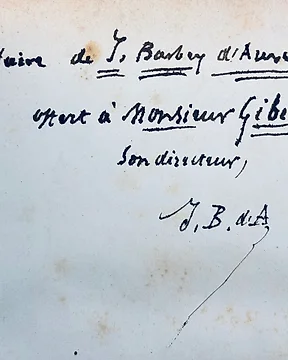 taire de J. Barbey d'Aure
offert à Monsieur Gibe
Son directeur,
J. B. d'A